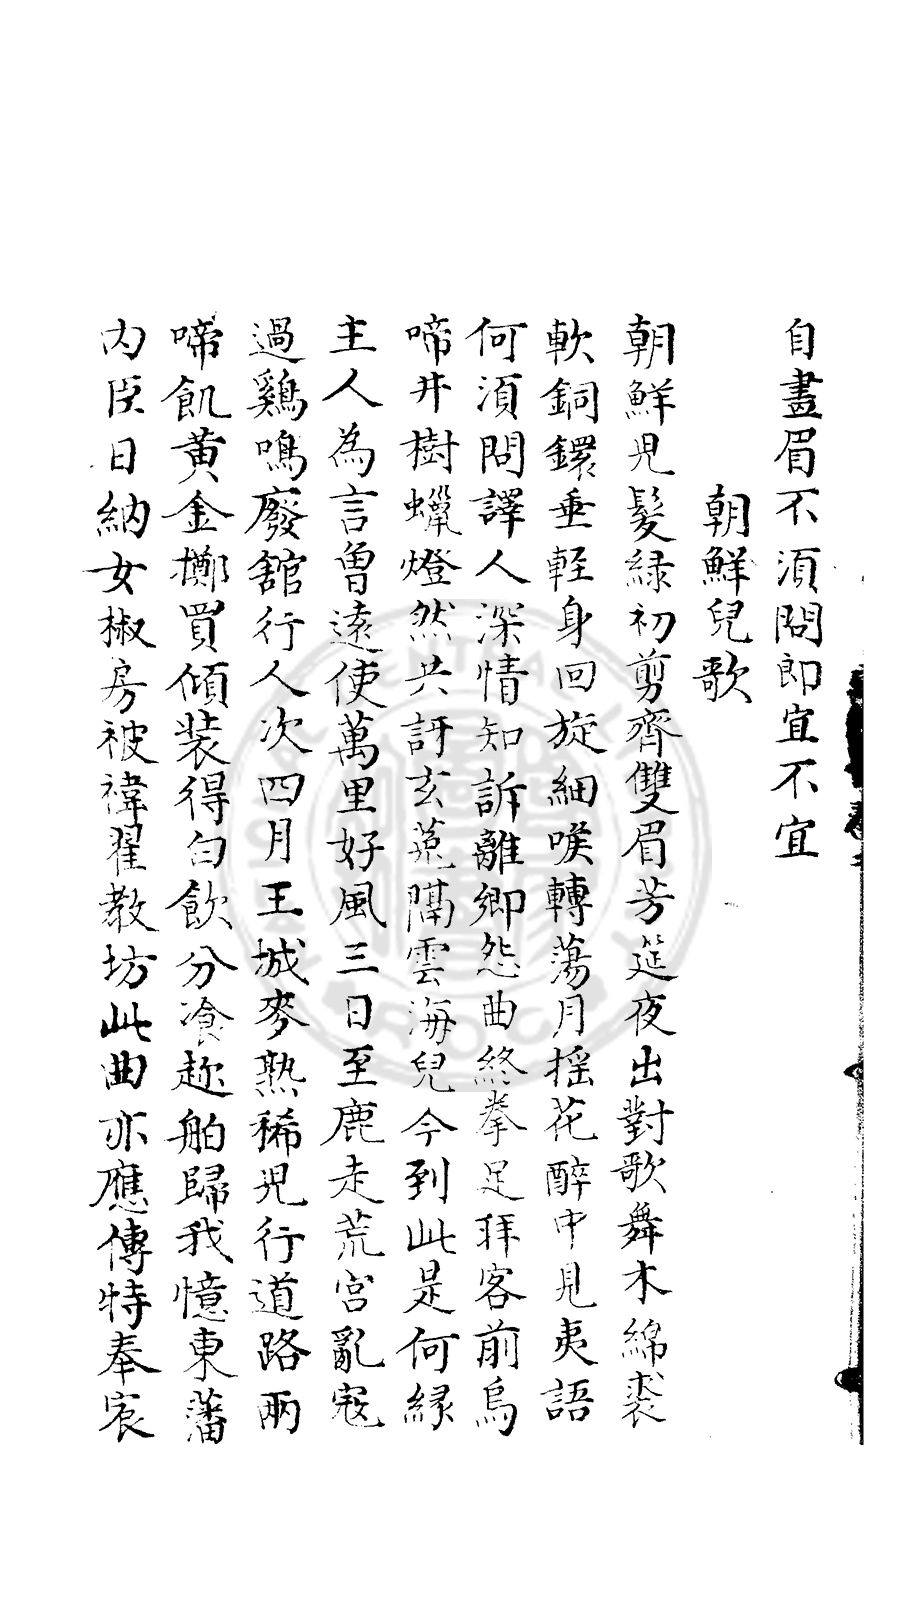 自畫眉不須問即宜不宜
朝鮮兒歌
朝鮮兒髮綠初剪齊雙眉芳筵夜出對歌舞木綿裘
軟銅鐶垂輕身回旋細喉轉蕩月揺花醉中見夷語
何須問譯人深情知訴離鄉怨曲終拳足拜客前烏
啼井樹蠟燈然共訝玄菟隔雲海兒今到此是何緣
主人為言曽遠使萬里好風三日至鹿走荒宮亂寇
過鷄鳴廢舘行人次四月王城麥熟稀兒行道路兩
啼飢黃金擲買傾装得白飲分飡趂舶歸我憶東藩
內臣日納女椒房被褘翟教坊此曲亦應傳特奉宸